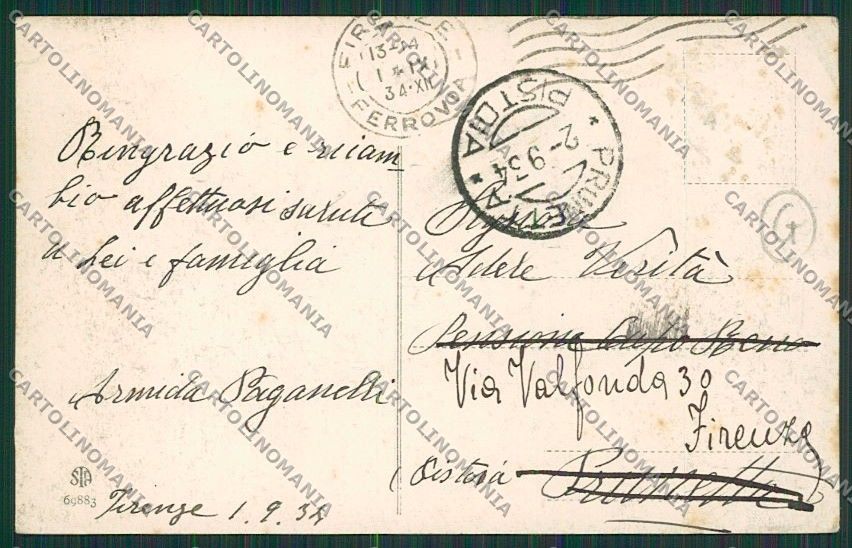 FIRENZE
13-14
1 * IX
34·XII
FERROVIA
PISTOIA
2-9 34
* PRUNETTA *
Ringrazio e ricam
bio affettuosi saluti
a Lei e famiglia
Armida Paganelli
STA
69883
Firenze 1.9.34
Signora
Verità
Pensione
Via Valfonda 30
Firenze
(Pistoia) Prunetta
CARTOLINOMANIA